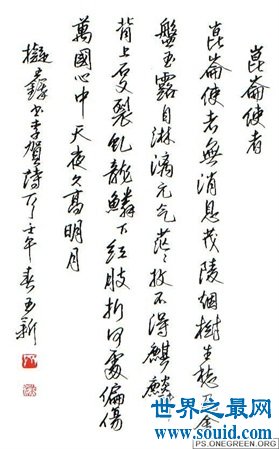 崑崙使者
崑崙使者無消息茂陵烟樹生愁色金
盤玉露自淋漓元气茫茫收不得麒麟
背上石文裂虬龍鱗下红肢折何處偏傷
萬國心中天夜久高明月
書李賀詩 壬午春
世界之最网
www.souid.com
PS.ONEGREEN.ORG